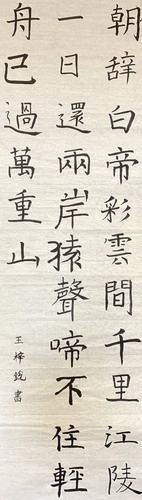 朝辞白帝彩雲間千里江陵
一日還兩岸猿聲啼不住輕
舟已過萬重山